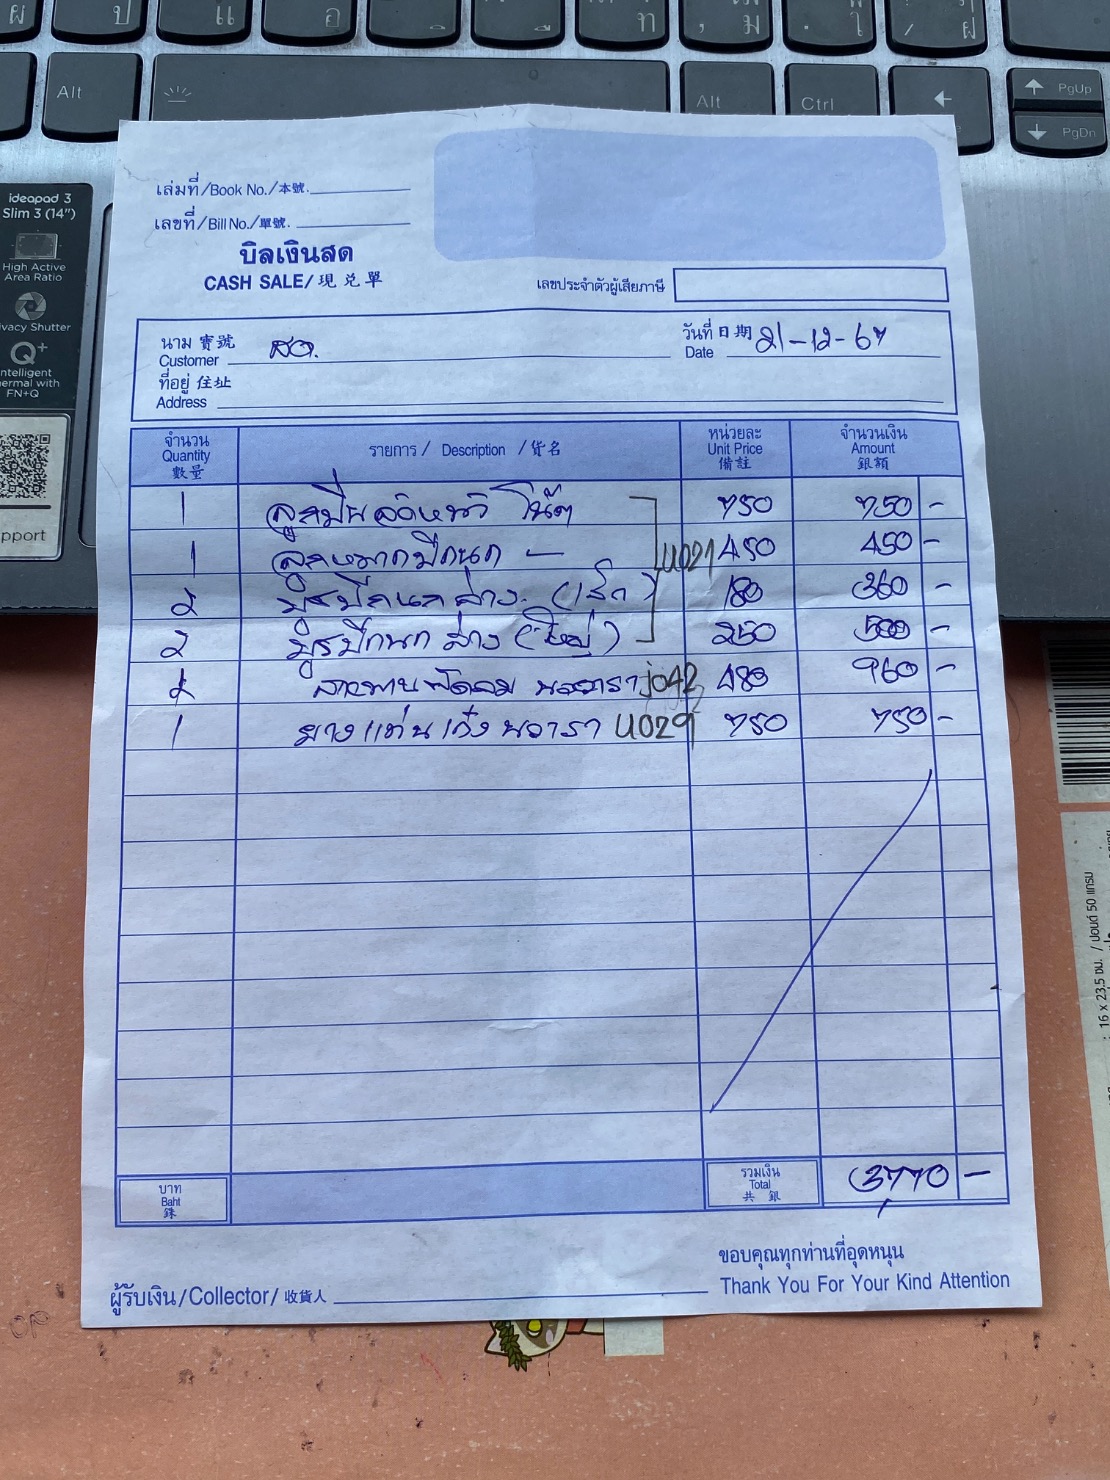 ผ ป แ อ ิ ื ท ม ใ ฝ
Alt Alt Ctrl PgUp
PgDn
ideapad 3
Slim 3 (14")
High Active
Area Ratio
Privacy Shutter
Q+
Intelligent
Thermal with
FN+Q
Support
เล่มที่/Book No./本號.
เลขที่/Bill No./單號.
บิลเงินสด
CASH SALE/現兌單
เลขประจำตัวผู้เสียภาษี
นาม 寶號
Customer สด.
วันที่ 日期
Date 21-12-67
ที่อยู่ 住址
Address
จำนวน
Quantity
數量
รายการ / Description / 貨名
หน่วยละ
Unit Price
備註
จำนวนเงิน
Amount
銀額
1 ลูกปืน ล้อหน้า โน๊ต 750 750 -
1 ลูกหมากปีกนก — 450 450 -
2 บู๊ชปีกนกล่าง (เล็ก) 180 360 -
2 บู๊ชปีกนกล่าง (ใหญ่) 250 500 -
U021
2 สายพานพัดลม นาวารา J042 480 960 -
1 ยางแท่นเครื่อง นาวารา U029 750 750 -
บาท
Baht
銖
รวมเงิน
Total
共 銀
3,770 -
ขอบคุณทุกท่านที่อุดหนุน
Thank You For Your Kind Attention
ผู้รับเงิน/Collector/收貨人
16 x 23.5 ซม. / ปอนด์ 50 แกรม